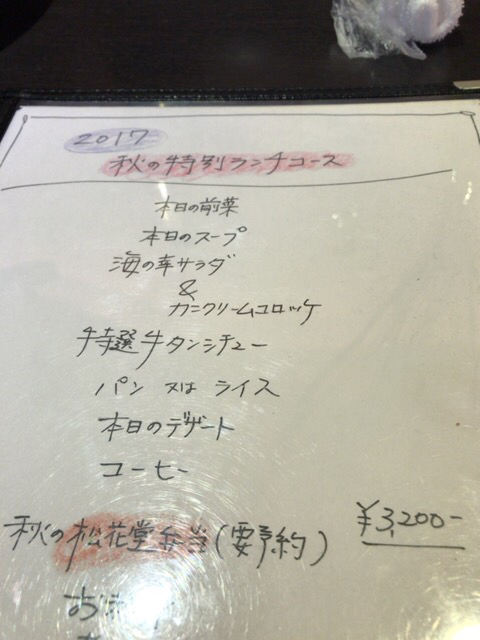 2017
秋の特別ランチコース
本日の前菜
本日のスープ
海の幸サラダ
&
カニクリームコロッケ
特選牛タンシチュー
パン 又は ライス
本日のデザート
コーヒー
¥3,200-
秋の松花堂弁当(要予約)